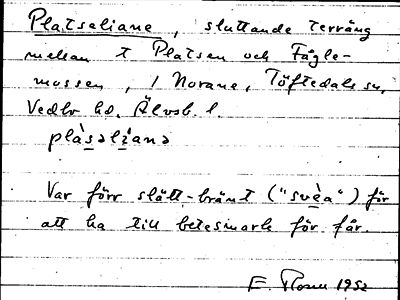 Platsaliane, sluttande terräng
mellan t Platsen och Fågle-
mossen, i Norane, Töftedals sn,
Vedbo hd. Älvsb. l.
plàsəlianə
Var förr slått-bränt ("svèa") för
att ha till betesmark för får.
E. 1952